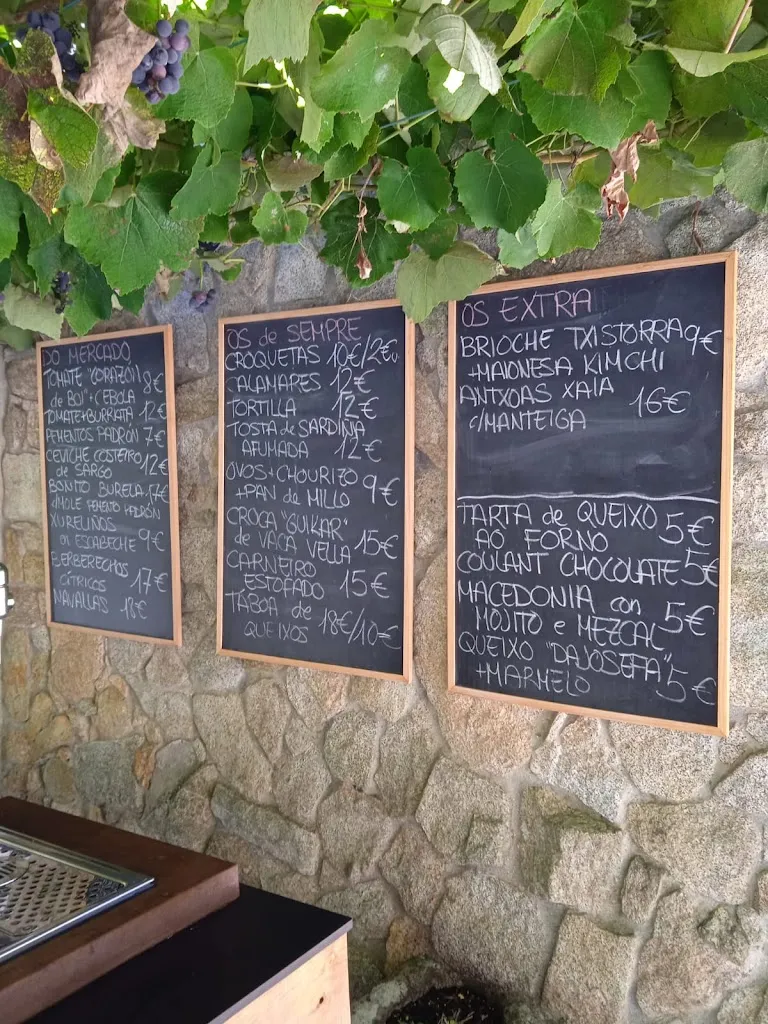 DO MERCADO
TOMATE "CORAZÓN
de BOI" + CEBOLA 8€
TOMATE+BURRATA 12€
PEMENTOS PADRÓN 7€
CEVICHE COSTEIRO
de SARGO 12€
BONITO BURELA 17€
+MOLE PEMENTO PADRÓN
XURELIÑOS
en ESCABECHE 9€
BERBERECHOS
CÍTRICOS 17€
NAVALLAS 18€
OS de SEMPRE
CROQUETAS 10€/2€u
CALAMARES 12€
TORTILLA 12€
TOSTA de SARDIÑA
AFUMADA 12€
OVOS+CHOURIZO
+PAN de MILLO 9€
CROCA "GUIKAR"
de VACA VELLA 15€
CARNEIRO
ESTOFADO 15€
TÁBOA de
QUEIXOS 18€/10€
OS EXTRA
BRIOCHE TXISTORRA 9€
+MAIONESA KIMCHI
ANTXOAS XAIA
C/MANTEIGA 16€
TARTA de QUEIXO
AO FORNO 5€
COULANT CHOCOLATE 5€
MACEDONIA con
MOJITO e MEZCAL 5€
QUEIXO "DAJOSEFA"
+MARMELO 5€